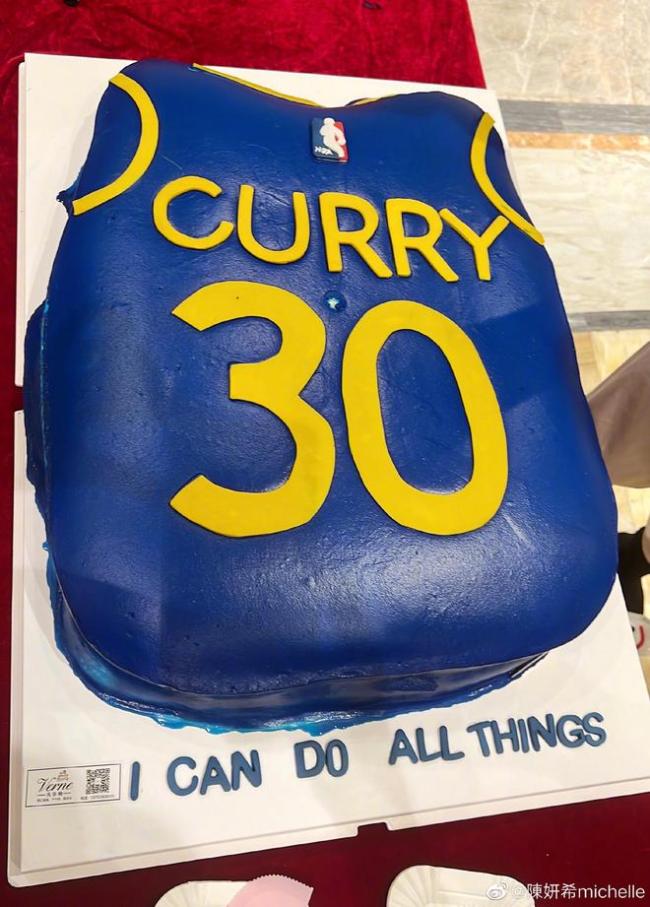 CURRY
30
I CAN DO ALL THINGS
Verne
@陳妍希michelle